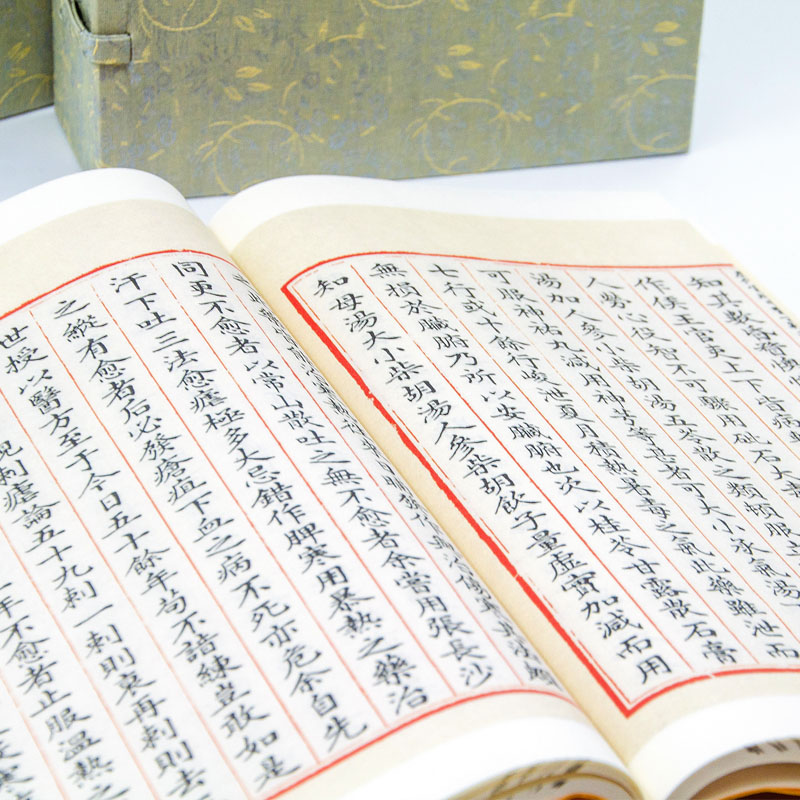 知其數
作使王官失上下皆病
人勞心役智不可用砒石大
湯加人參小柴胡湯五苓散之類頓服
可服神祐丸減用神芎等甚者可大小承氣湯
七行或十餘行峻泄夏月積熱暑毒之氣此藥雖泄而
無損於臟腑乃所以安臟腑也次以桂苓甘露散石膏
知母湯大小柴胡湯人參柴胡飲子量虛實加減而用
同更不愈者以常山散吐之無不愈者余嘗用張長沙
汗下吐三法愈瘧極多大忌錯作脾寒用暴熱之藥治
之縱有愈者后必發瘡疽下血之病不死亦危余自先
世授以醫方至于今日五十餘年苟不諳練豈敢如是
刺瘧論五十九刺一刺則衰再刺則去
年不愈者止服溫熱之